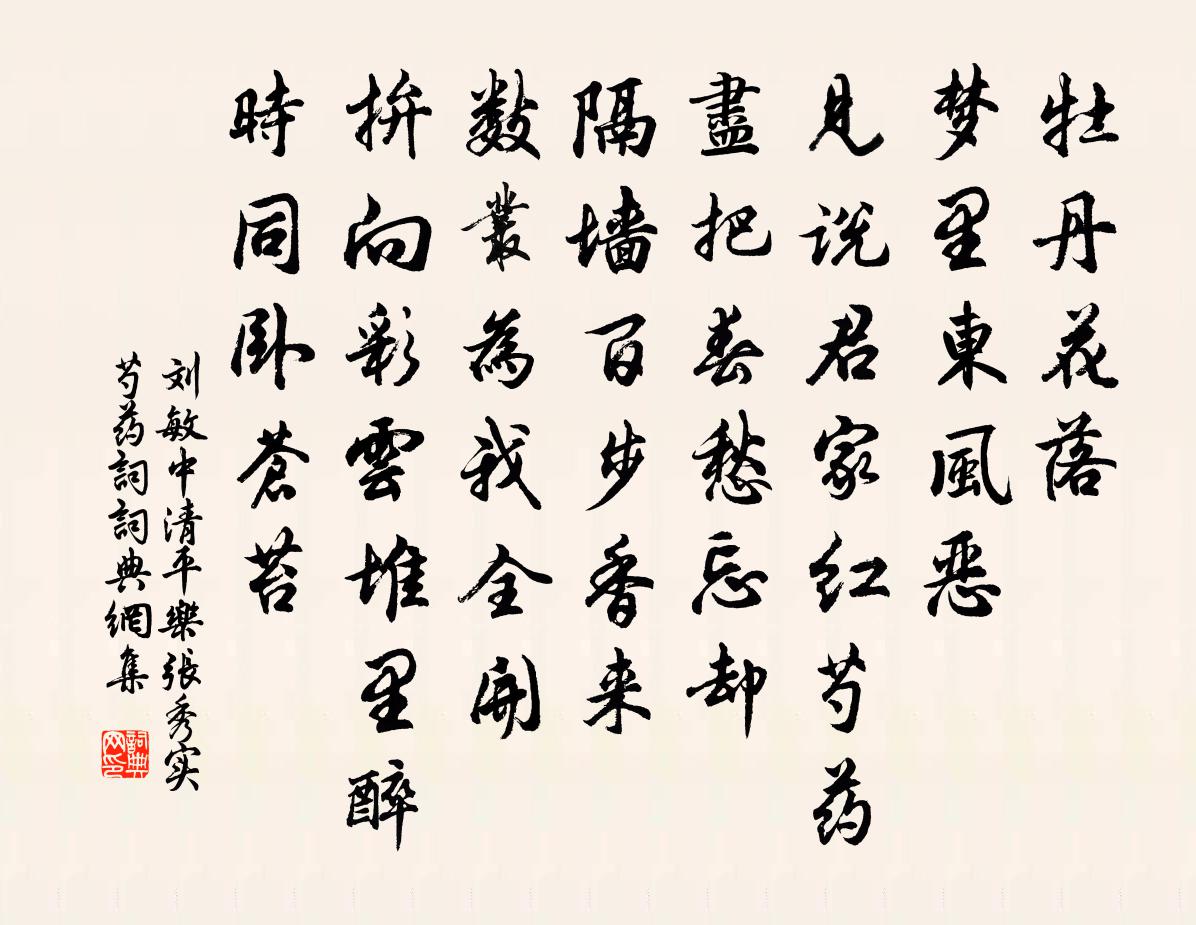 牡丹花落
梦里東風恶
見说君家红芍药
盡把春愁忘却
隔墙百步香来
数叢為我全開
拚向彩雲堆里醉
時同卧蒼苔
刘敏中清平樂張秀实
芍药詞詞典網集
詞典网印